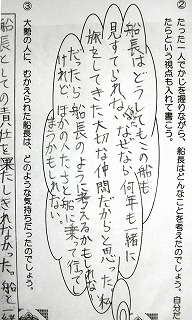 ② たった一人でかじを握りながら、船長はどんなことを考えたのでしょう。自分だ
たらという視点も入れて書こう。
船長はどうしてもこの船も
見すてられない。なぜなら何年も一緒に
旅をしてきた大切な仲間だからと思った。私
だったら船長のように考えるかもしれない
けれど、ほかの人たちと船に乗って行って
しまうかもしれない。
③ 大勢の人に、むかえられた船長は、どのような気持ちだったのでしょう。
船長としての責任を果たしきれなかった。船と